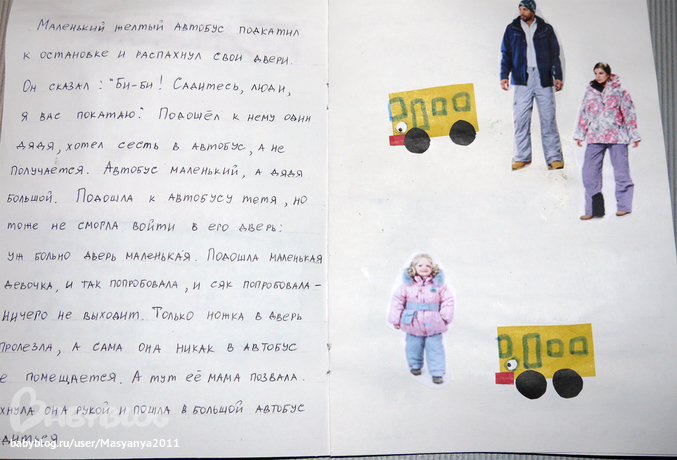 Маленький желтый автобус подкатил
к остановке и распахнул свои двери.
Он сказал: "Би-би! Садитесь, люди,
я вас покатаю." Подошёл к нему один
дядя, хотел сесть в автобус, а не
получается. Автобус маленький, а дядя
большой. Подошла к автобусу тетя, но
тоже не смогла войти в его дверь:
уж больно дверь маленькая. Подошла маленькая
девочка, и так попробовала, и сяк попробовала –
ничего не выходит. Только ножка в дверь
пролезла, а сама она никак в автобус
е помещается. А тут её мама позвала.
хнула она рукой и пошла в большой автобус
диться
BABYBLOG
babyblog.ru/user/Masyanya2011